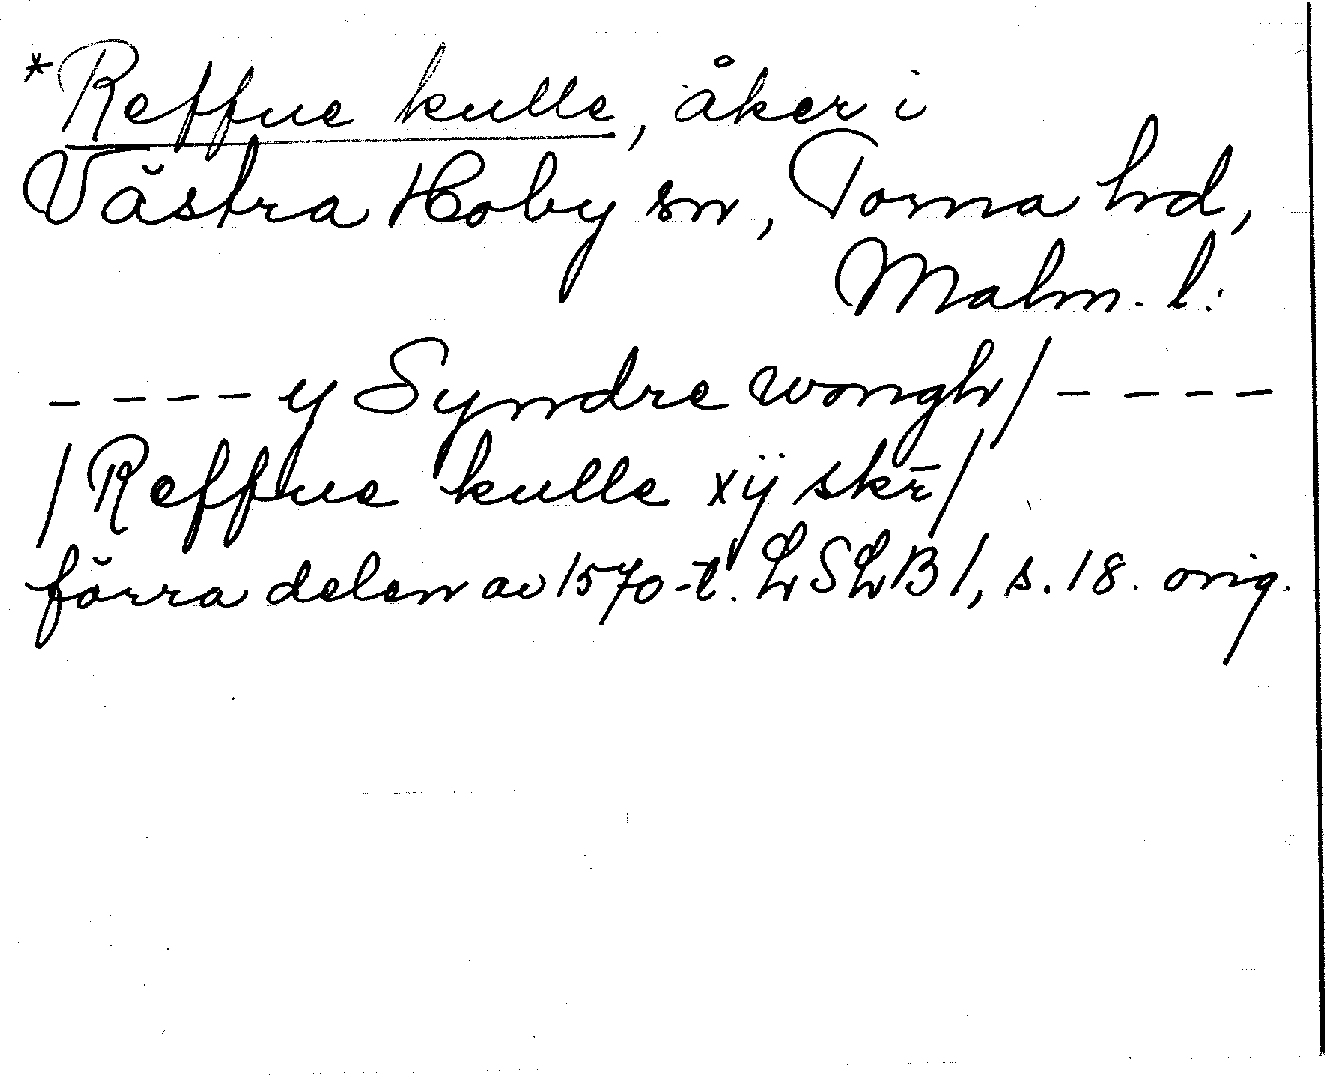 *Reffue kulle, åker i
Västra Hoby sn, Torna hd,
Malm. l:
- - - - y Syndre wongh/ - - - -
/Reffue kulle xÿ skr̄/
förra delen av 1570-t. LSLB1, s. 18. orig.